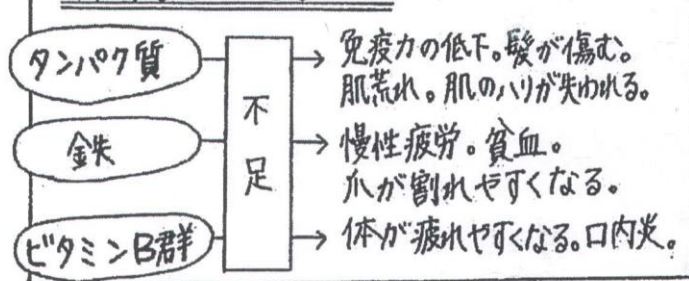 タンパク質
鉄
ビタミンB群
不足
免疫力の低下。髪が傷む。
肌荒れ。肌のハリが失われる。
慢性疲労。貧血。
爪が割れやすくなる。
体が疲れやすくなる。口内炎。